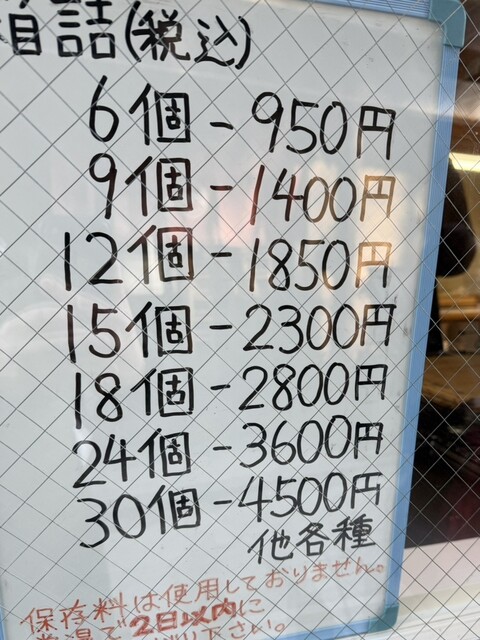 箱詰(税込)
6個-950円
9個-1400円
12個-1850円
15個-2300円
18個-2800円
24個-3600円
30個-4500円
他各種
保存料は使用しておりません。
常温で2日以内に
下さい。